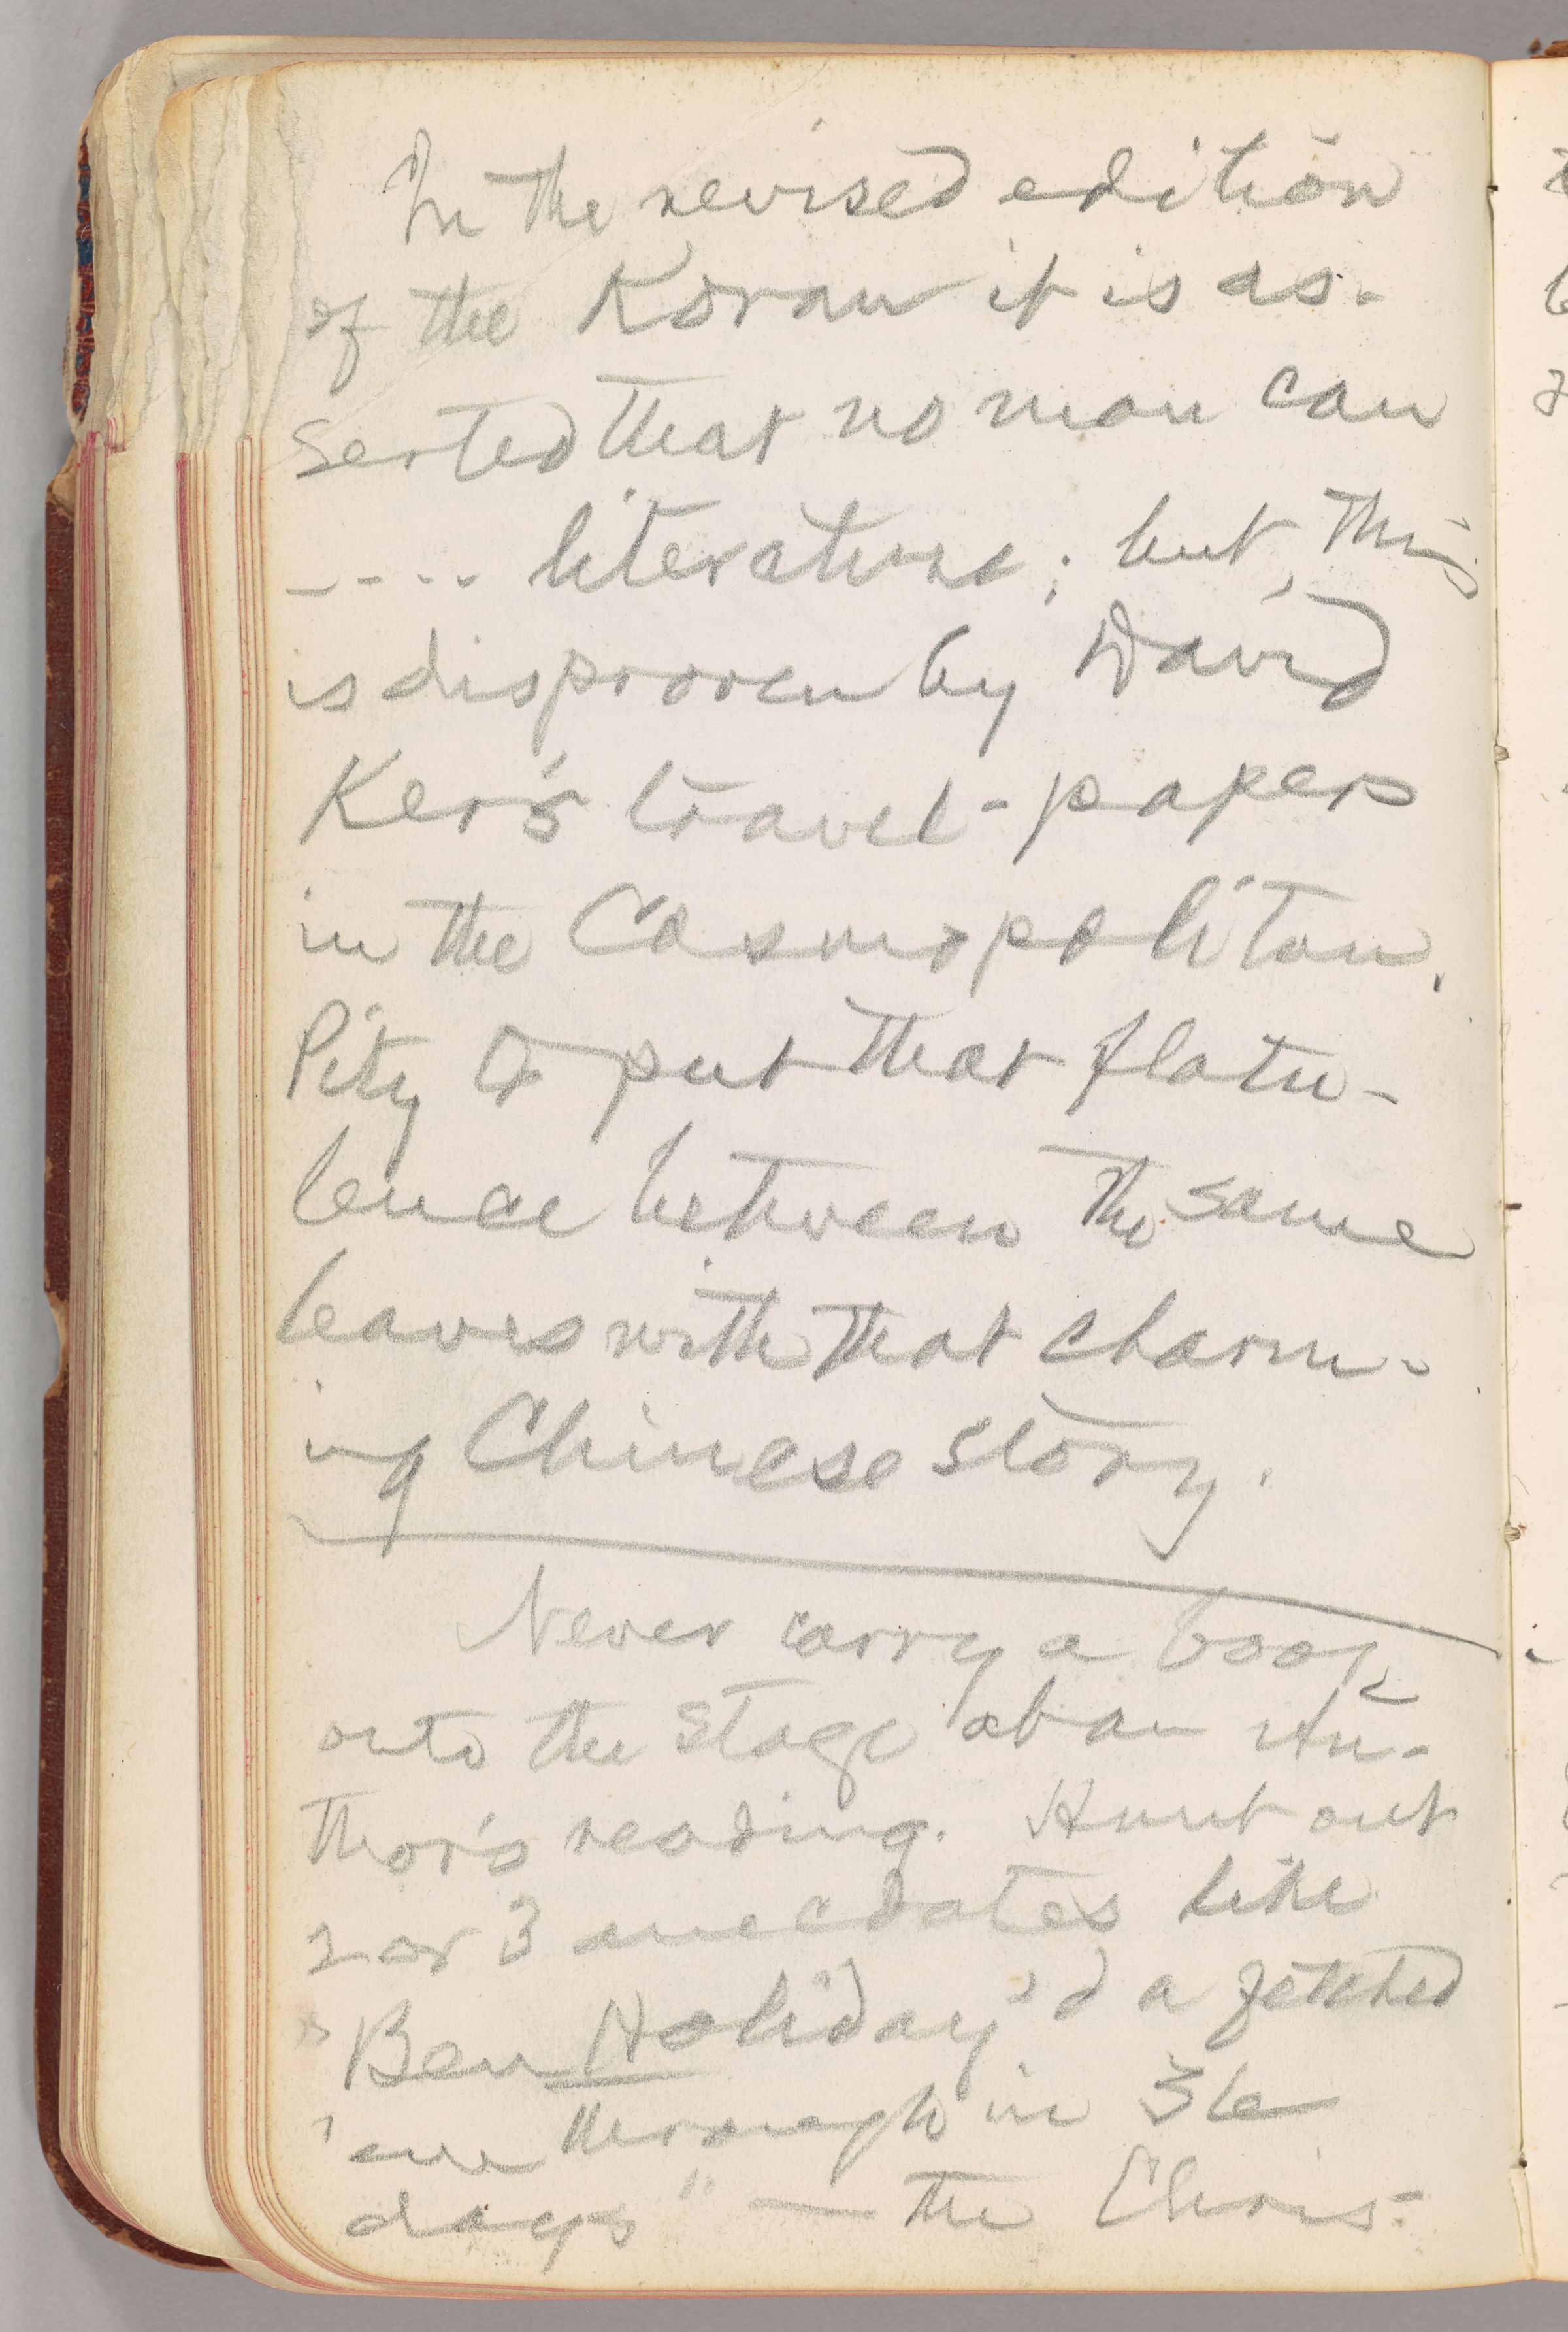 In the revised edition
of the Koran it is as-
serted that no man can
---- literature; but, this
is disproven by David
Ker's travel-papers
in the Cosmopolitan.
Pity to put that flatu-
lence between the same
leaves with that charm-
ing Chinese story.
Never carry a book
onto the stage at an Au-
thor's reading. Hunt out
2 or 3 anecdotes like
"Ben Holiday'd a fetched
'em through in 36
days" — the Chris-